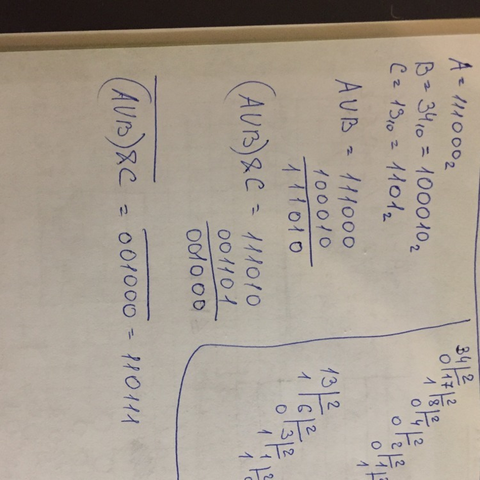 A = 111000₂
B = 34₁₀ = 100010₂
C = 13₁₀ = 1101₂
AVB = 111000
100010
111010
(AVB)&C = 111010
001101
001000
(AVB)&C = 001000 = 110111
34|2
0 17|2
1 8|2
0 4|2
0 2|2
0 1|2
1
13|2
1 6|2
0 3|2
1 1|2
1 0